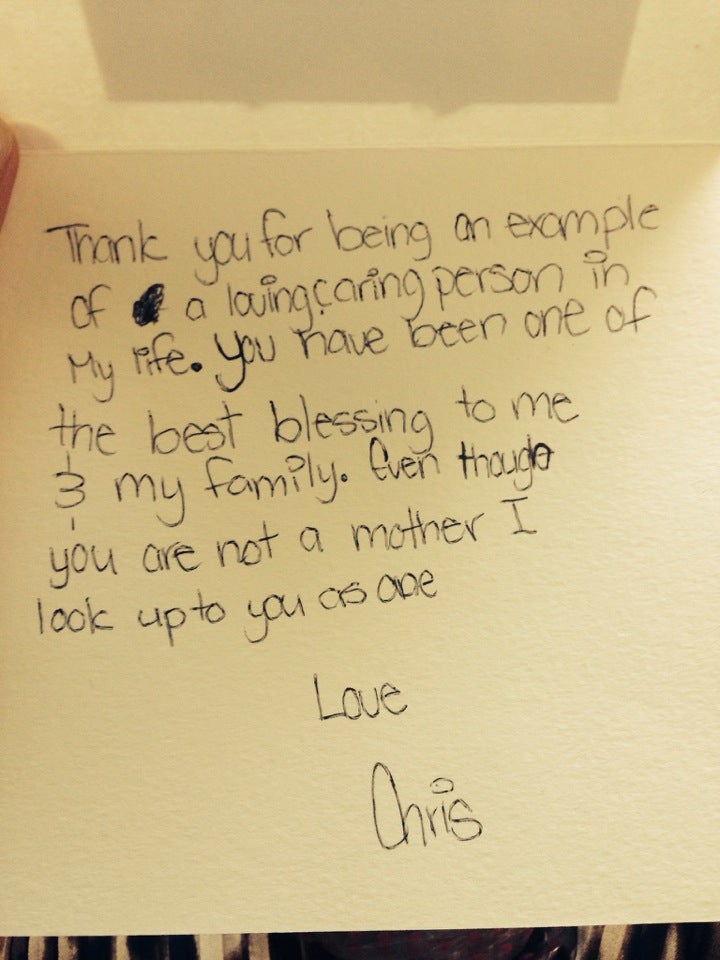 Thank you for being an example
of a loving, caring person in
My life. You have been one of
the best blessing to me
& my family. Even though
you are not a mother I
look up to you as one
Love
Chris